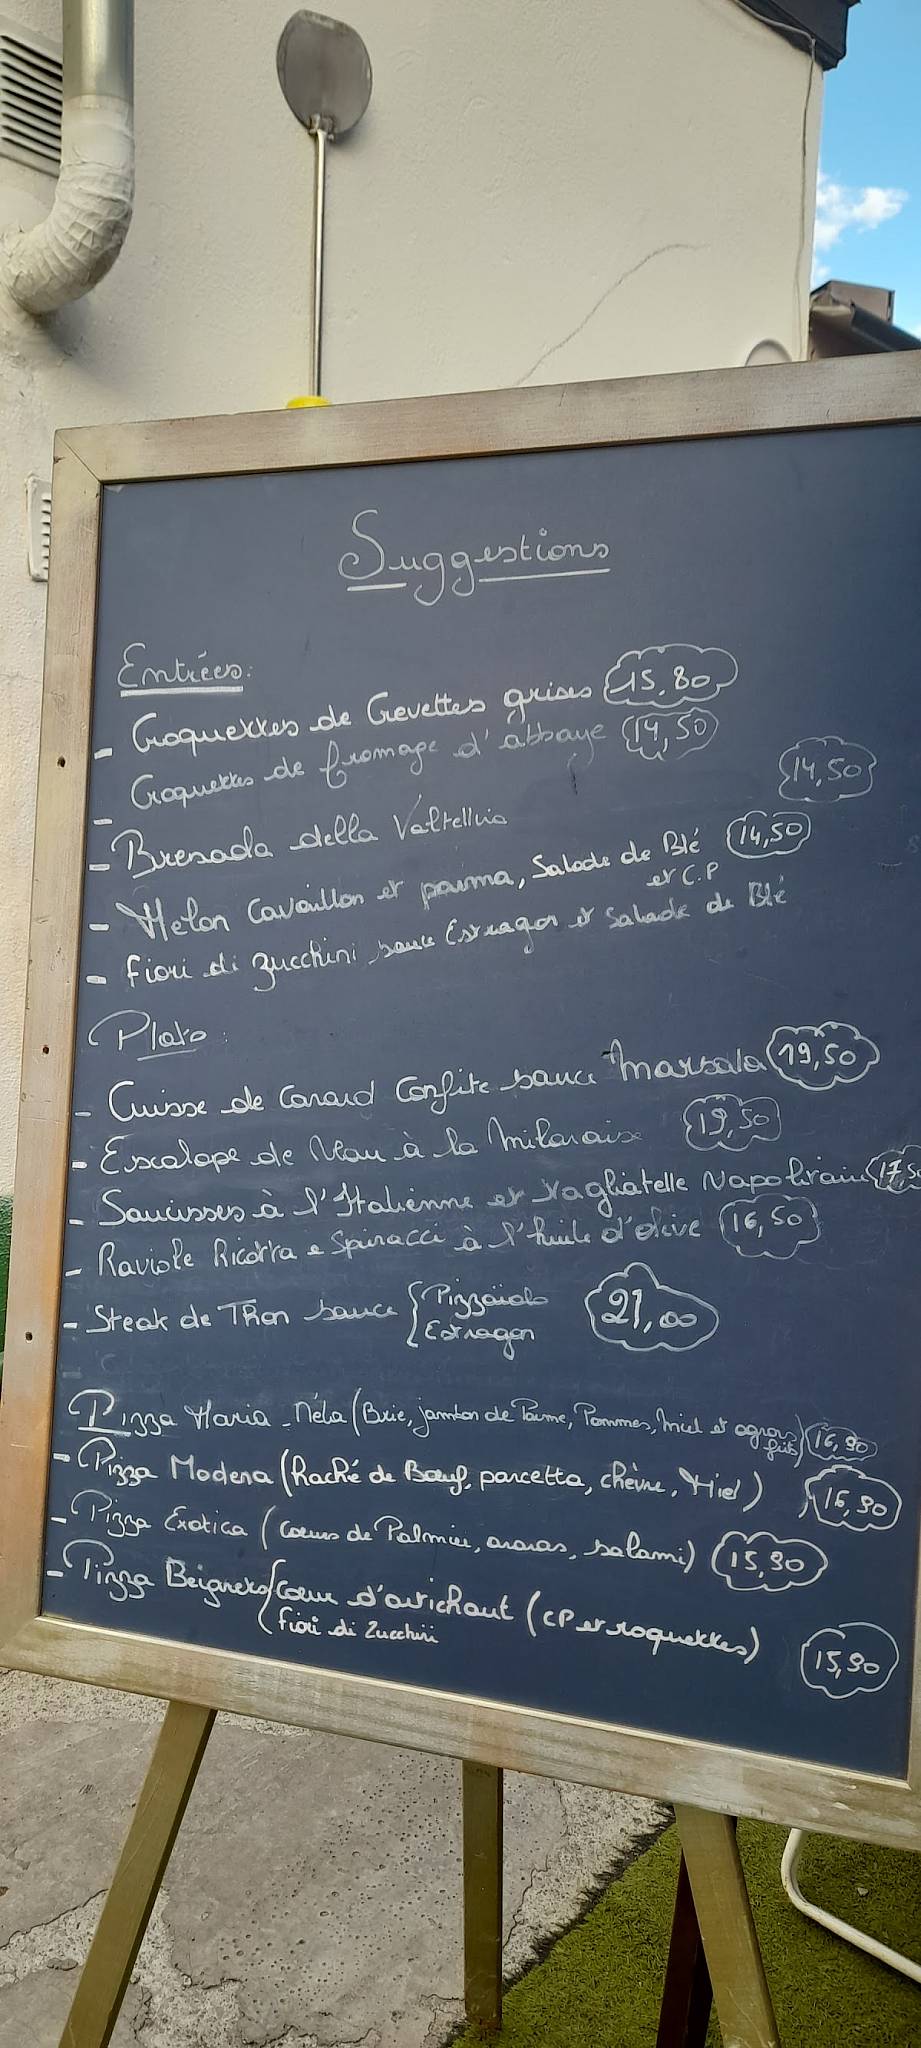 Suggestions
Entrées:
- Croquettes de Crevettes grises 15.80
- Croquettes de fromage d'abbaye 14,50
- Bresaola della Valtellina 14,50
- Melon Cavaillon et parma, Salade de Blé et C.P 14,50
- Fiori di zucchini sauce Estragon et Salade de Blé
Plats:
- Cuisse de Canard Confite sauce Marsala 19,50
- Escalope de Veau à la milanaise 19,50
- Saucisses à l'Italienne et Tagliatelle Napolitain 17,50
- Raviole Ricotta e Spinacci à l'huile d'olive 16,50
- Steak de Thon sauce { Pizzaïola 21,00
Estragon
Pizza Maria-Néla (Brie, jambon de Parme, Pommes, miel et ognons frits) 16,90
- Pizza Modena (haché de Bœuf, pancetta, chèvre, Miel) 16,90
- Pizza Exotica (cœurs de Palmier, ananas, salami) 15,90
- Pizza Beignets { Cœur d'artichaut (CP et roquettes) 15,90
Fiori di Zucchini